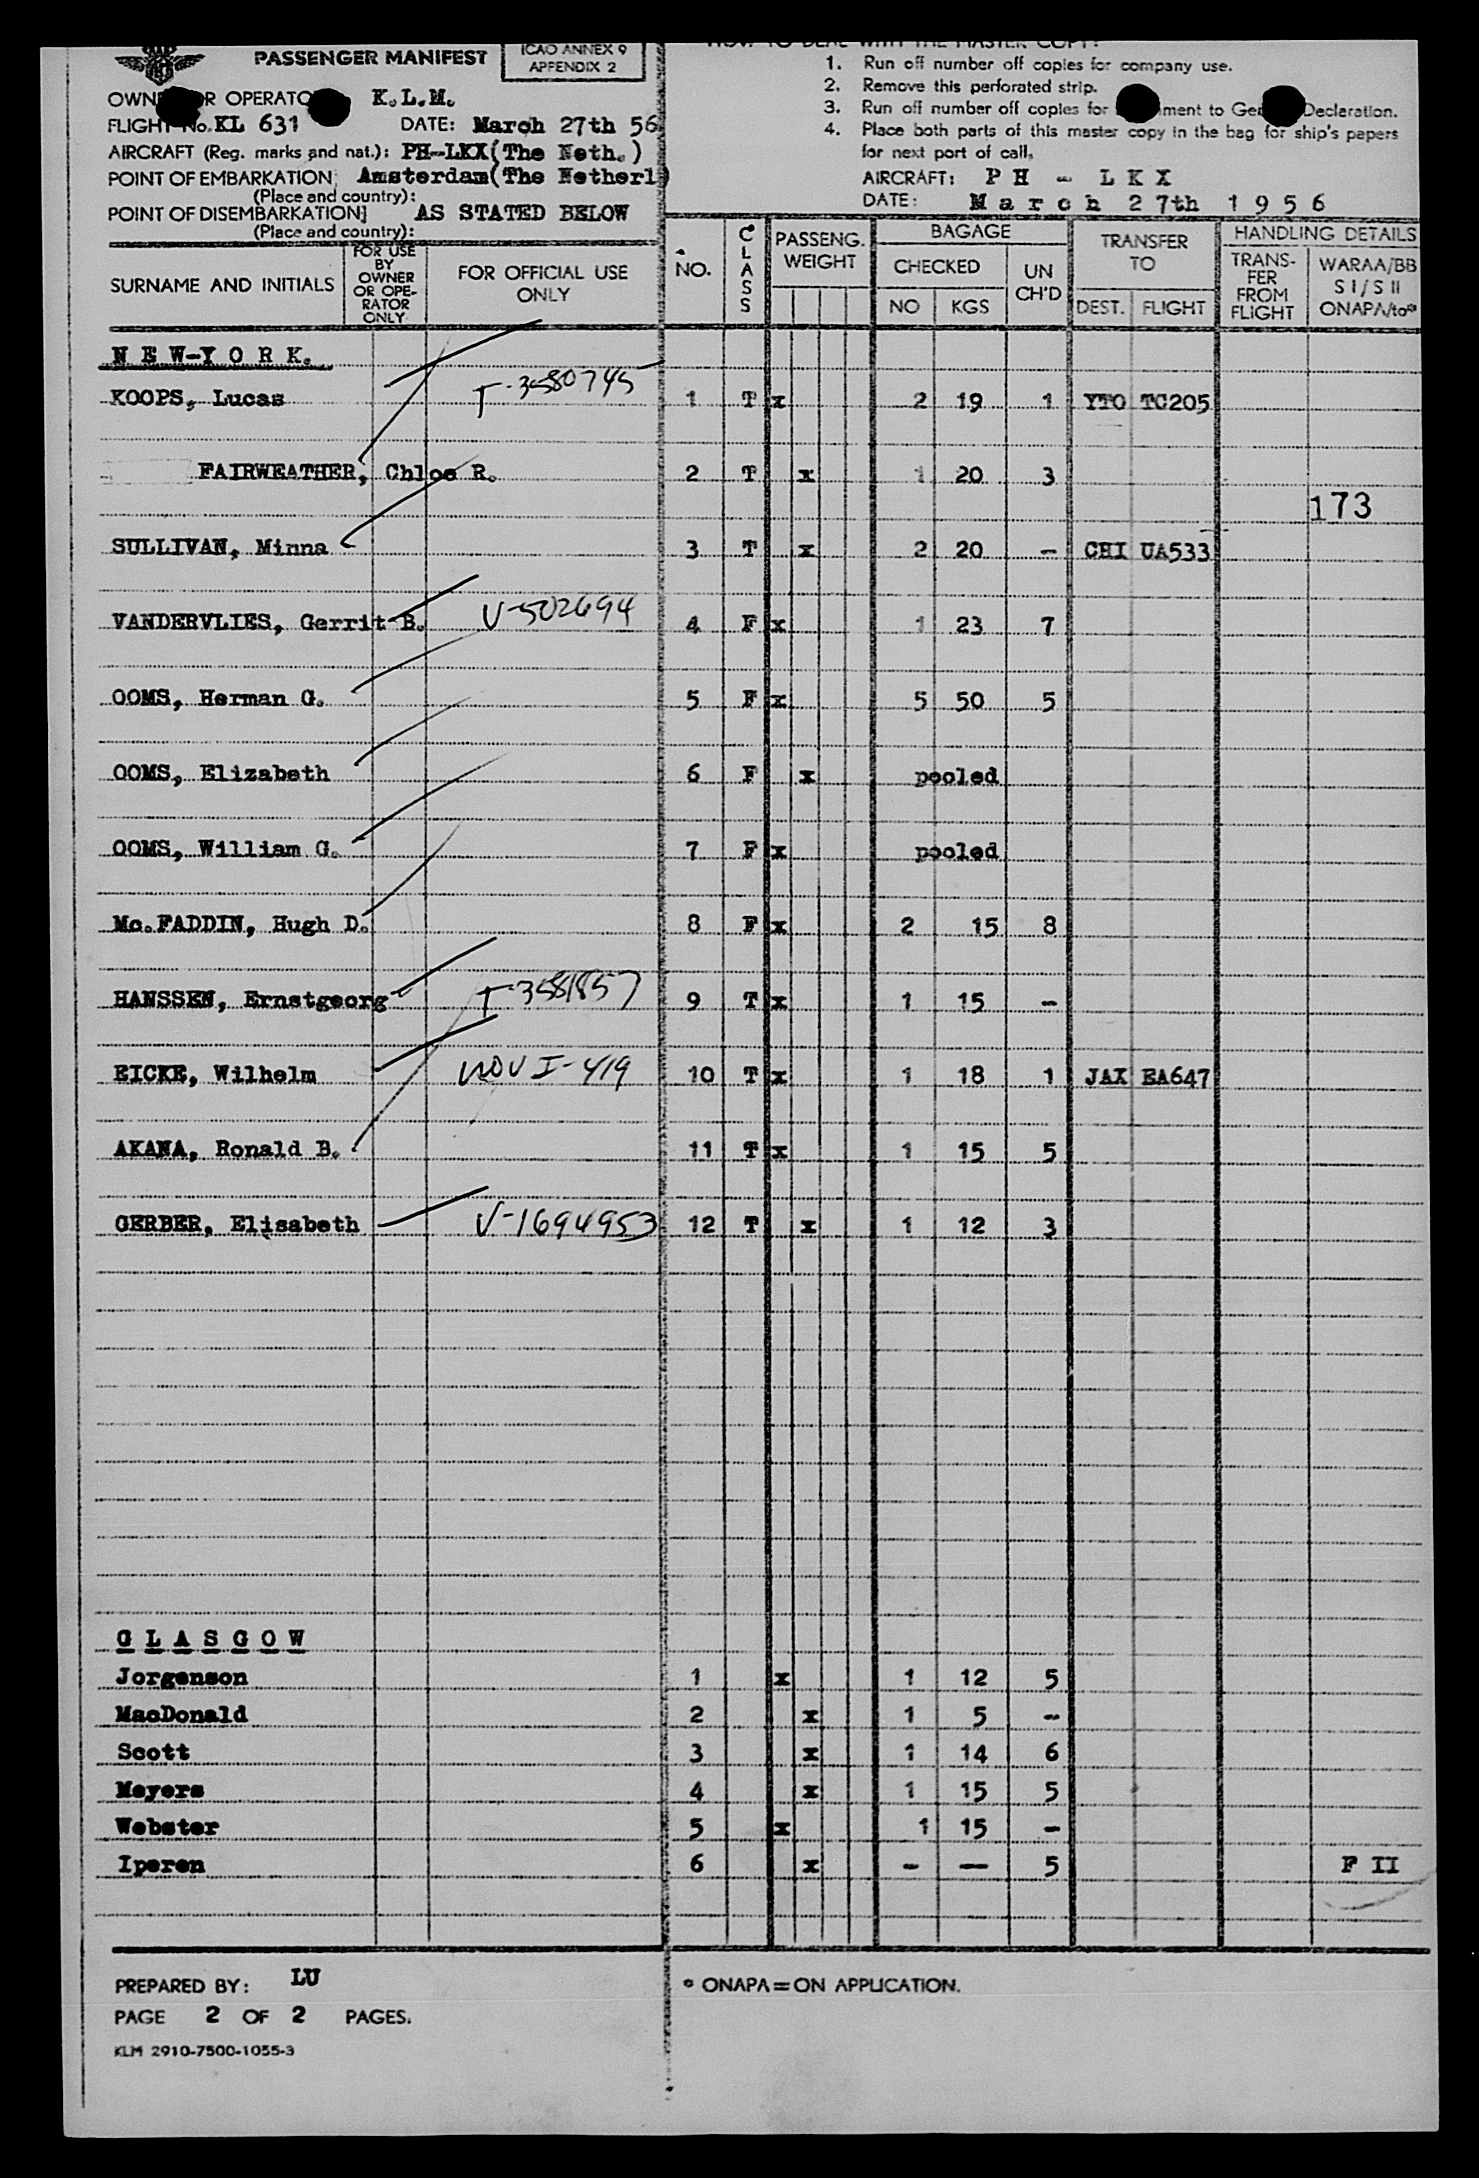 PASSENGER MANIFEST
ICAO ANNEX 9
APPENDIX 2
OWN R OPERATO K.L.M.
FLIGHT No. KL 631 DATE: March 27th 56
AIRCRAFT (Reg. marks and nat.): PH-LKX(The Neth.)
POINT OF EMBARKATION: Amsterdam(The Netherl)
(Place and country):
POINT OF DISEMBARKATION] AS STATED BELOW
(Place and country):
1. Run off number off copies for company use.
2. Remove this perforated strip.
3. Run off number off copies for ment to Ge Declaration.
4. Place both parts of this master copy in the bag for ship's papers
for next port of call,
AIRCRAFT: P H - L K X
DATE: March 27th 1956
SURNAME AND INITIALS
FOR USE
BY
OWNER
OR OPE-
RATOR
ONLY.
FOR OFFICIAL USE
ONLY
NO.
CLASS
PASSENG.
WEIGHT
BAGAGE
CHECKED
NO KGS
UN
CH'D
TRANSFER
TO
DEST. FLIGHT
HANDLING DETAILS
TRANS-
FER
FROM
FLIGHT
WARAA/BB
S I / S II
ONAPA/to*
N E W-Y O R K.
KOOPS, Lucas T-3580745 1 T x 2 19 1 YTO TC205
FAIRWEATHER, Chloe R. 2 T x 1 20 3
173
SULLIVAN, Minna 3 T x 2 20 - CHI UA533
VANDERVLIES, Gerrit B. V-502694 4 F x 1 23 7
OOMS, Herman G. 5 F x 5 50 5
OOMS, Elizabeth 6 F x pooled
OOMS, William G. 7 F x pooled
Mc.FADDIN, Hugh D. 8 F x 2 15 8
HANSSEN, Ernstgeorg T-3581857 9 T x 1 15 -
EICKE, Wilhelm NOV I-419 10 T x 1 18 1 JAX EA647
AKANA, Ronald B. 11 T x 1 15 5
GERBER, Elisabeth V-1694953 12 T x 1 12 3
G L A S G O W
Jorgenson 1 x 1 12 5
MacDonald 2 x 1 5 -
Scott 3 x 1 14 6
Meyers 4 x 1 15 5
Webster 5 x 1 15 -
Iperen 6 x - - 5 F II
PREPARED BY: LU
* ONAPA=ON APPLICATION.
PAGE 2 OF 2 PAGES.
KLM 2910-7500-1055-3